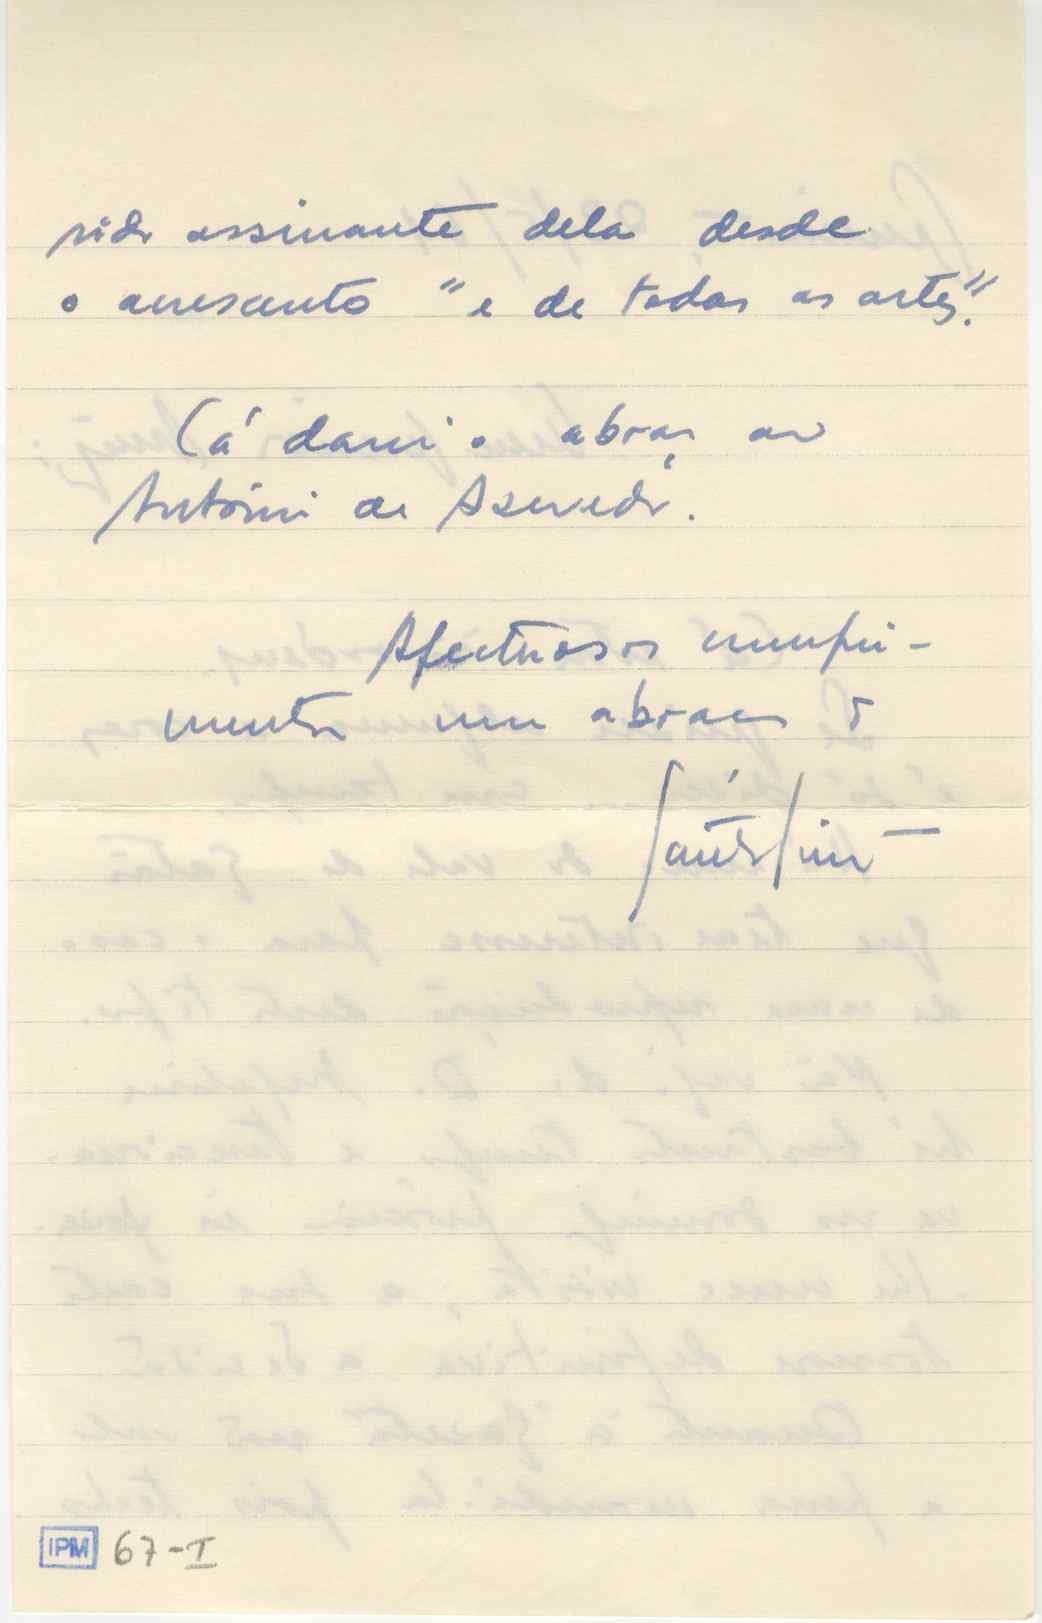 sido assinante dela desde
o acrescento "e de todas as artes".
Cá darei o abraço ao
António de Azevedo.
Afectuosos cumpri-
mentos num abraço
IPM 67-I